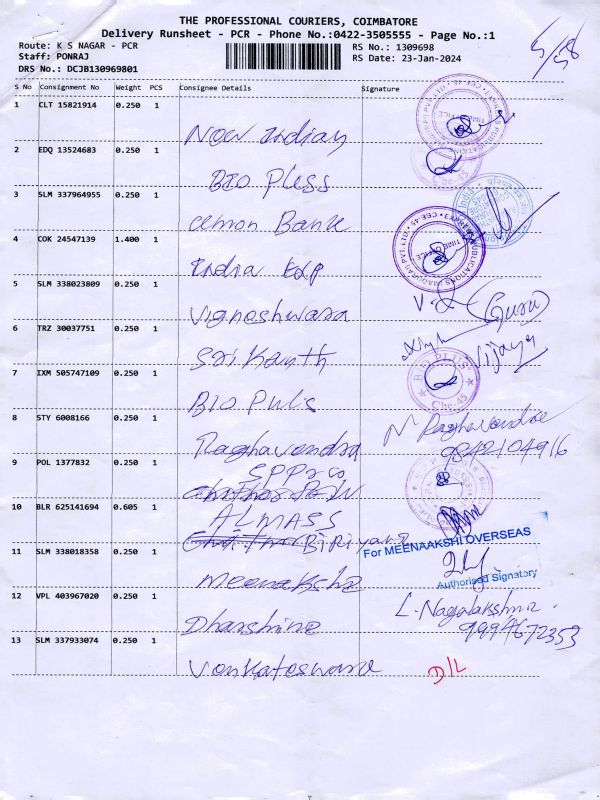 THE PROFESSIONAL COURIERS, COIMBATORE
Delivery Runsheet - PCR - Phone No.:0422-3505555 - Page No.:1
Route: K S NAGAR - PCR
RS No.: 1309698
Staff: PONRAJ
RS Date: 23-Jan-2024
DRS No.: DCJB130969801
5/58
S No Consignment No Weight PCS Consignee Details Signature
1 CLT 15821914 0.250 1
Now Indian
2 EDQ 13524683 0.250 1
BIO Pless
3 SLM 337964955 0.250 1
cemon Bank
4 COK 24547139 1.400 1
India Exp
5 SLM 338023809 0.250 1
Vigneshwara
Guru
6 TRZ 30037751 0.250 1
Srikanth
Vijaya
7 IXM 505747109 0.250 1
BIO Puls
BIO PLUS
Cbe-45
8 STY 6008166 0.250 1
Raghavendra
N Raghavendra
9842104916
9 POL 1377832 0.250 1
SPP & Co
10 BLR 625141694 0.605 1
ALMASS
BIRIYANI
For MEENAAKSHI OVERSEAS
Authorised Signatory
11 SLM 338018358 0.250 1
Meenakshi
12 VPL 403967020 0.250 1
Dharshine
L. Nagalakshmi
9994672353
13 SLM 337933074 0.250 1
Venkateswara
D/L
EXPRESS PUBLICATIONS (MADURAI) PVT. LTD. CBE-45
TIME OFFICE